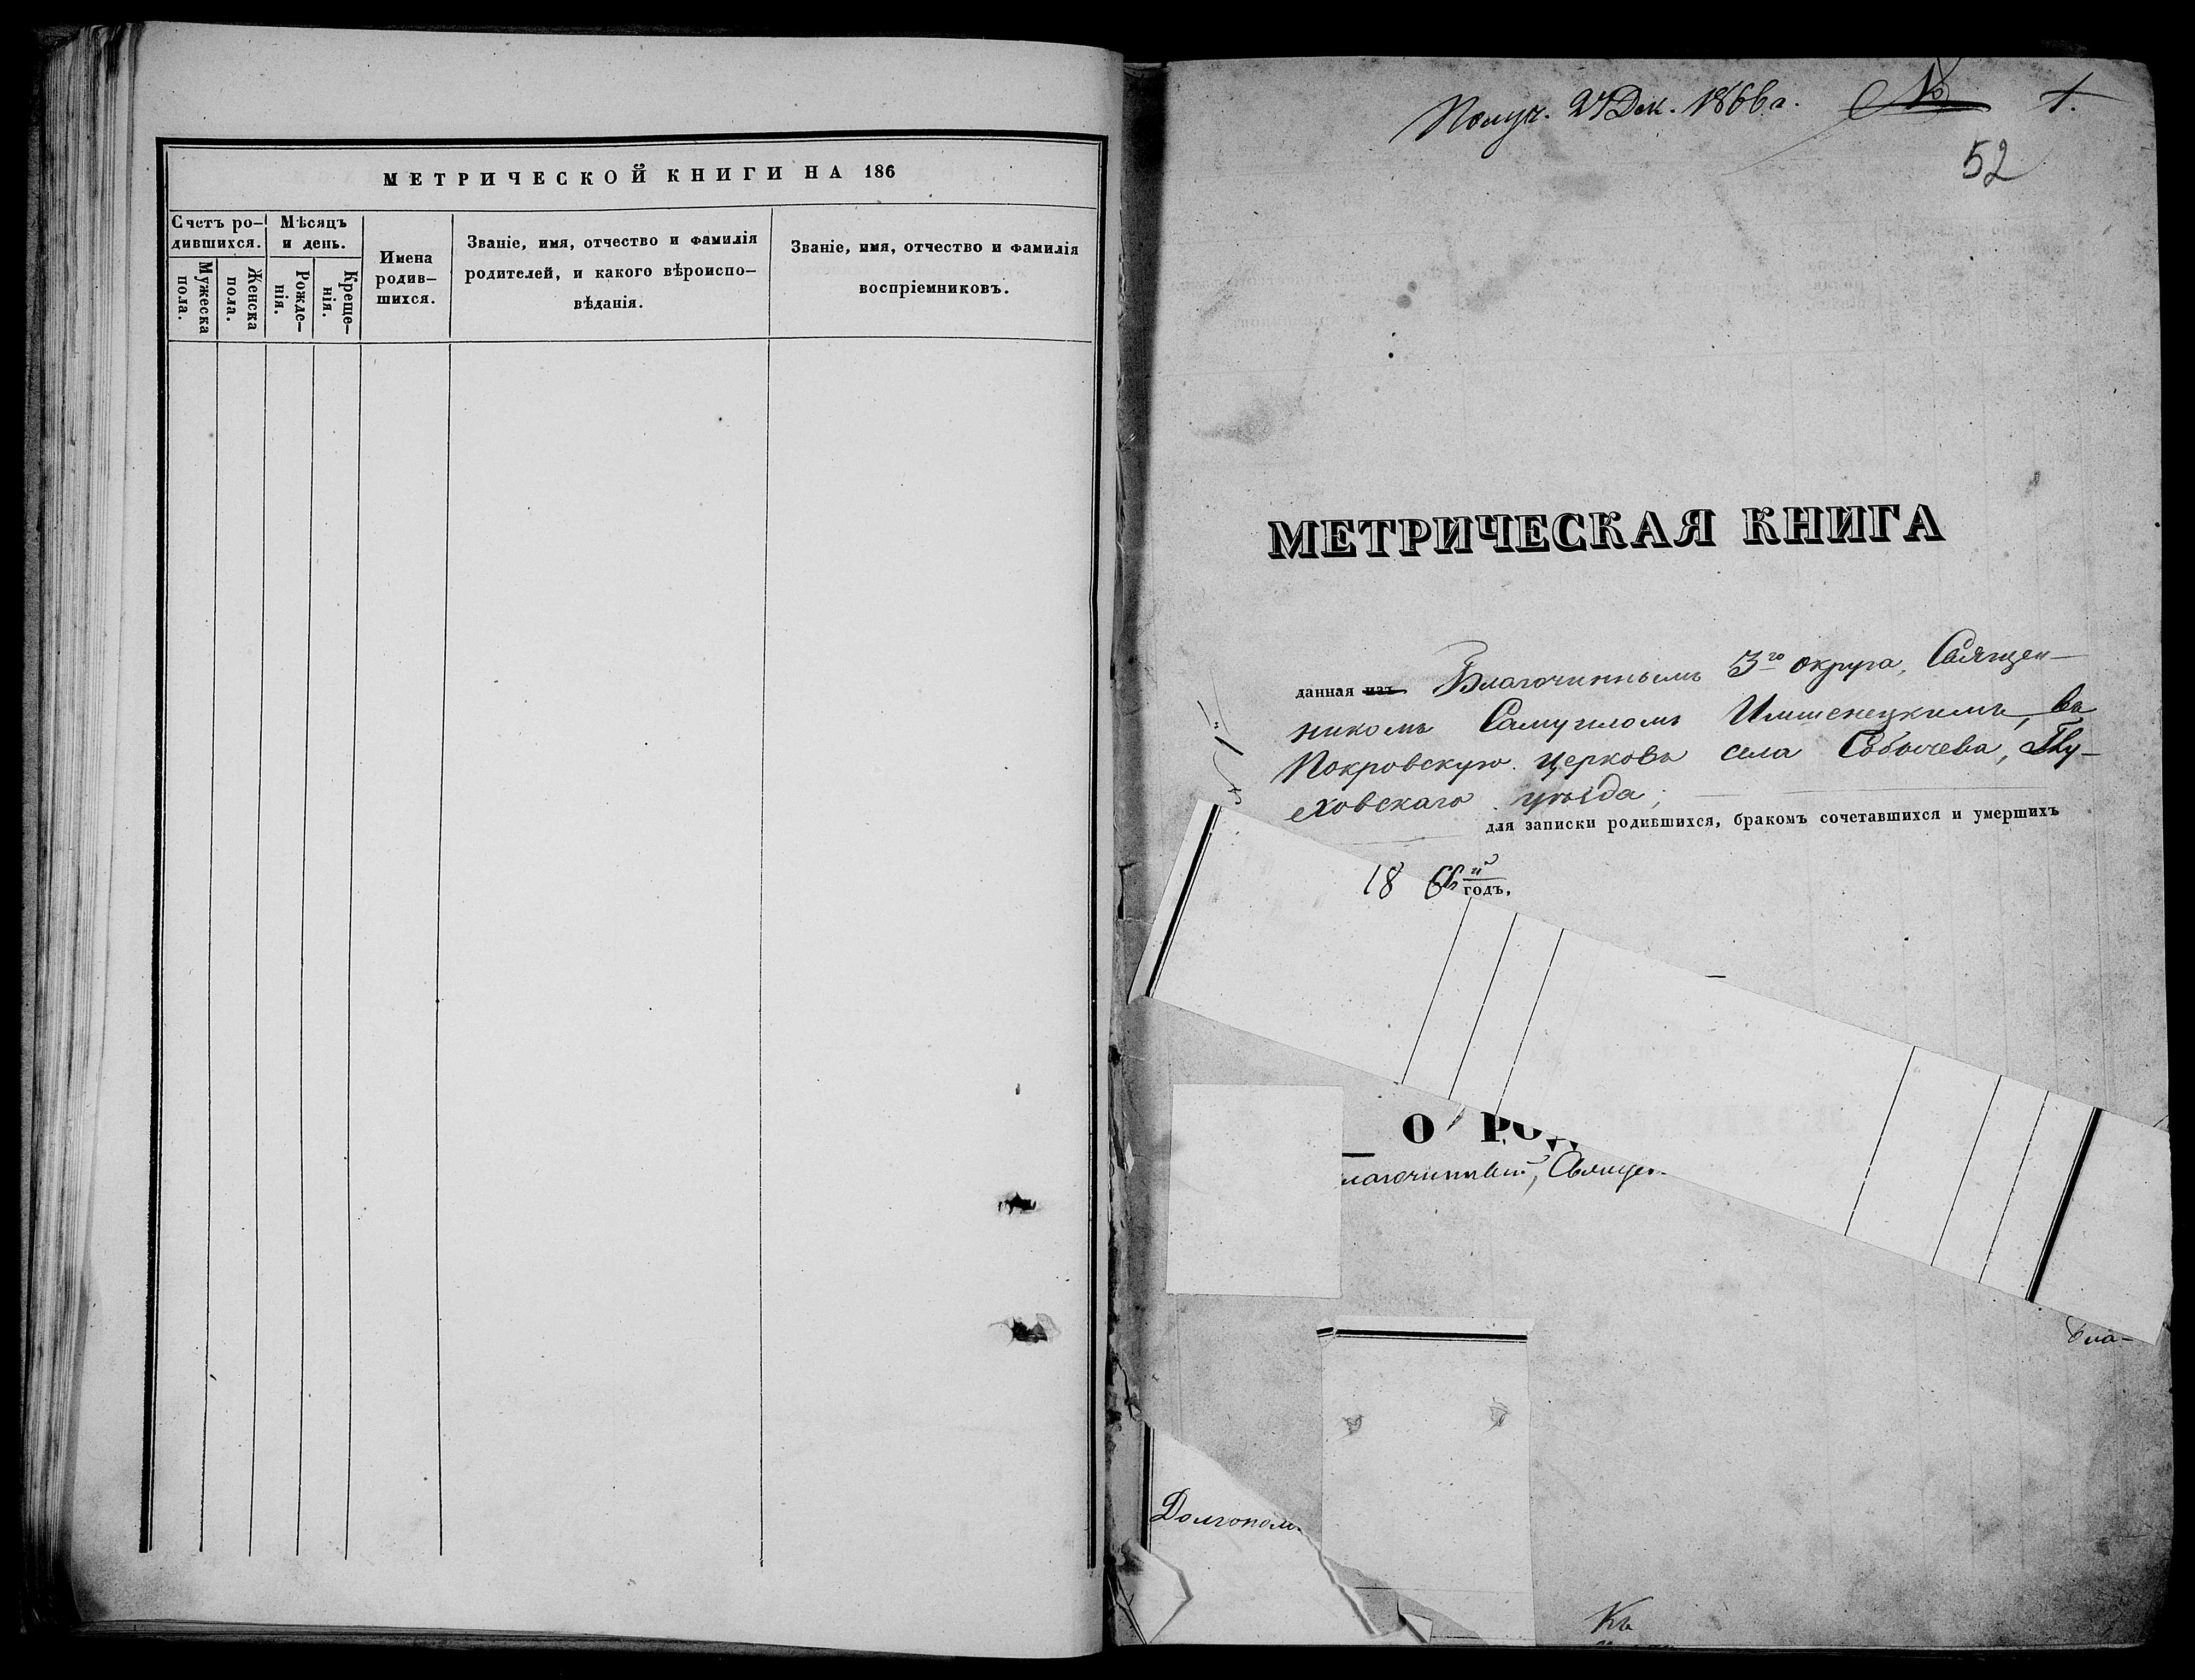 МЕТРИЧЕСКОЙ КНИГИ НА 186
Счетъ ро-
дившихся.
Мѣсяцъ
и день.
Мужеска
пола.
Женска
пола.
Рожде-
нія.
Креще-
нія.
Имена
родив-
шихся.
Званіе, имя, отчество и фамилія
родителей, и какого вѣроиспо-
вѣданія.
Званіе, имя, отчество и фамилія
воспріемниковъ.
Получ. 27 Дек. 1866 г. № 1.
52
МЕТРИЧЕСКАЯ КНИГА
данная изъ Благочиннымъ 3го округа, Священ-
никомъ Самуиломъ Имшенецкимъ, въ
Покровскую церковь села Собычева, Глу-
ховскаго уѣзда;
для записки родившихся, бракомъ сочетавшихся и умершихъ
18 66й годъ.
О РОД
лагочинный, Священ
бла-
Долгопол
Къ